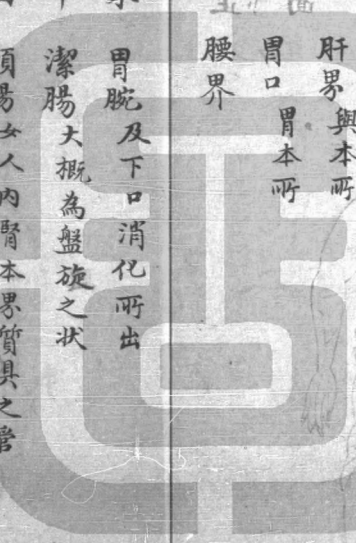 肝界與本所
胃口 胃本所
腰界
胃腕及下口消化所出
潔腸大概為盤旋之状
易女人內腎本界質具之管